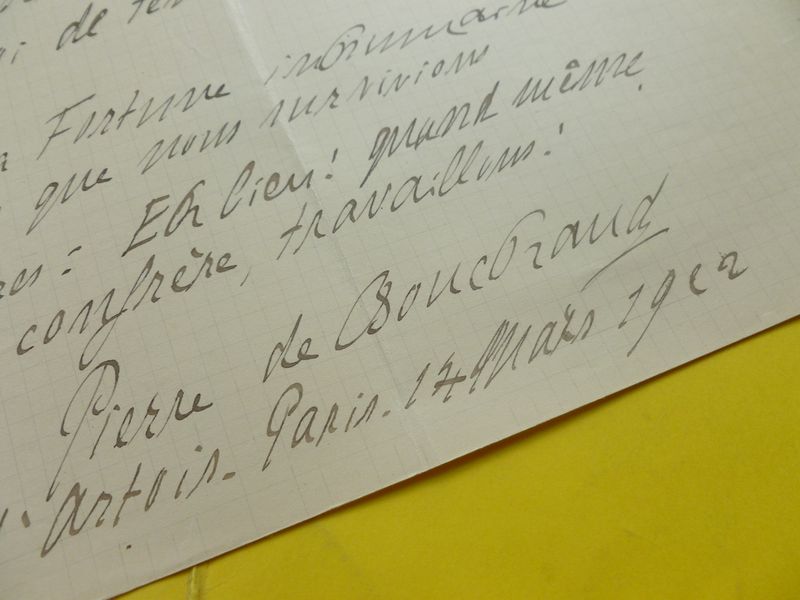 de
Fortune inhumaine
que nous survivions
: Eh bien! quand même,
confrère, travaillons!
Pierre de Bouchaud
d'Artois. Paris. 14 Mars 1912